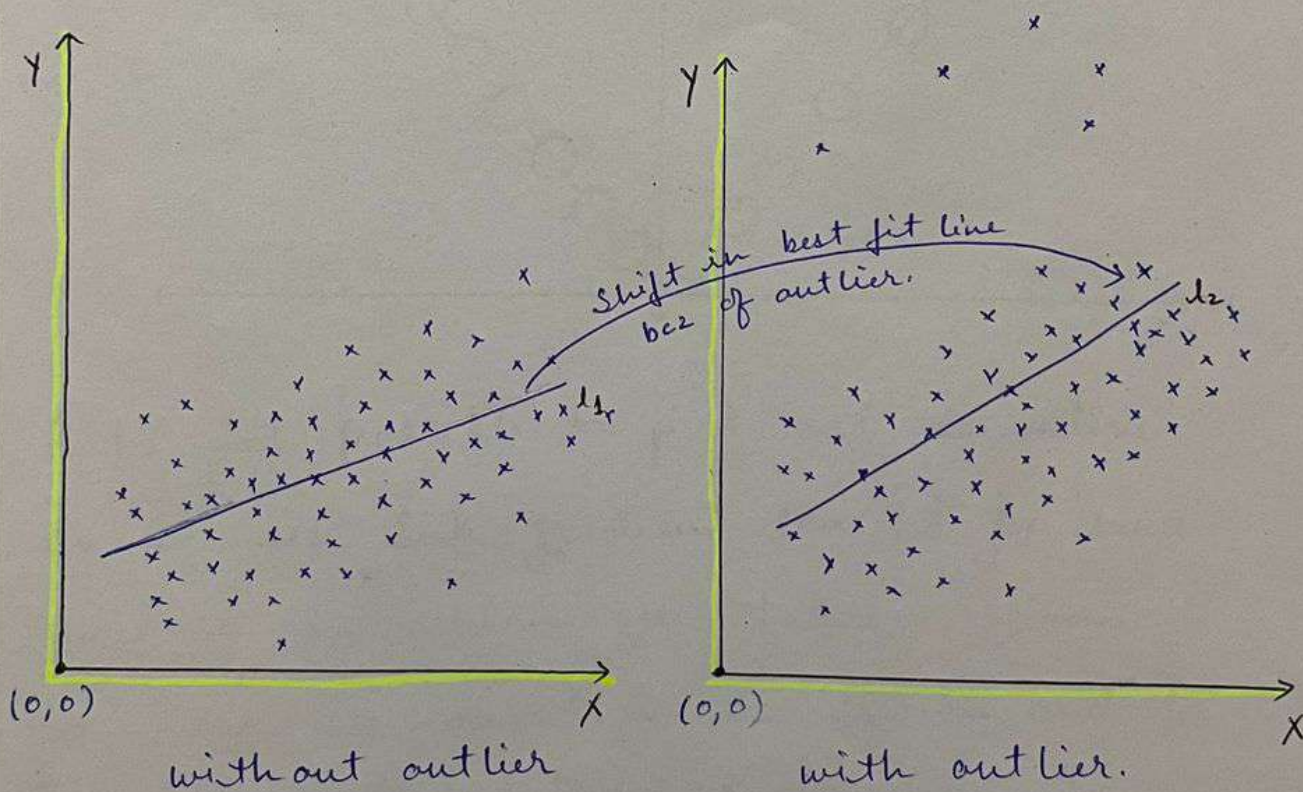 Y
Y
Shift in best fit line
bcz of outlier.
l1
l2
(0,0)
X
(0,0)
X
without outlier
with outlier.